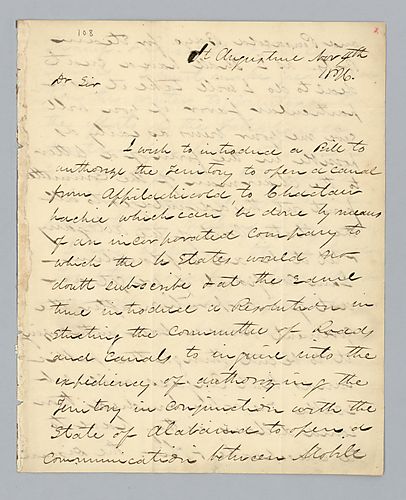 108
2
St Augustine Nov 9th
1826.
Dr Sir
I wish to introduce a Bill to
authorize the Territory to open a canal
from Appilachicola, to Chactaw
hachie which can be done by means
of an incorporated Company to
which the U States would no
doubt subscribe & at the same
time introduce a Resolution in
structing the Committee of Roads
and Canals to inquire into the
expediency of authorizing the
Territory in conjunction with the
State of Alabama to open a
communication between Mobile